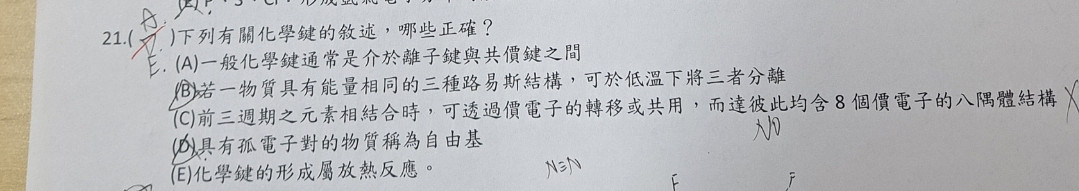 21.( A. E. )下列有關化學鍵的敘述，哪些正確？
(A)一般化學鍵通常是介於離子鍵與共價鍵之間
(B)若一物質具有能量相同的三種路易斯結構，可於低溫下將三者分離
(C)前三週期之元素相結合時，可透過價電子的轉移或共用，而達彼此均含 8 個價電子的八隅體結構 X
NO
(D)具有孤電子對的物質稱為自由基
(E)化學鍵的形成屬放熱反應。
N≡N
F F